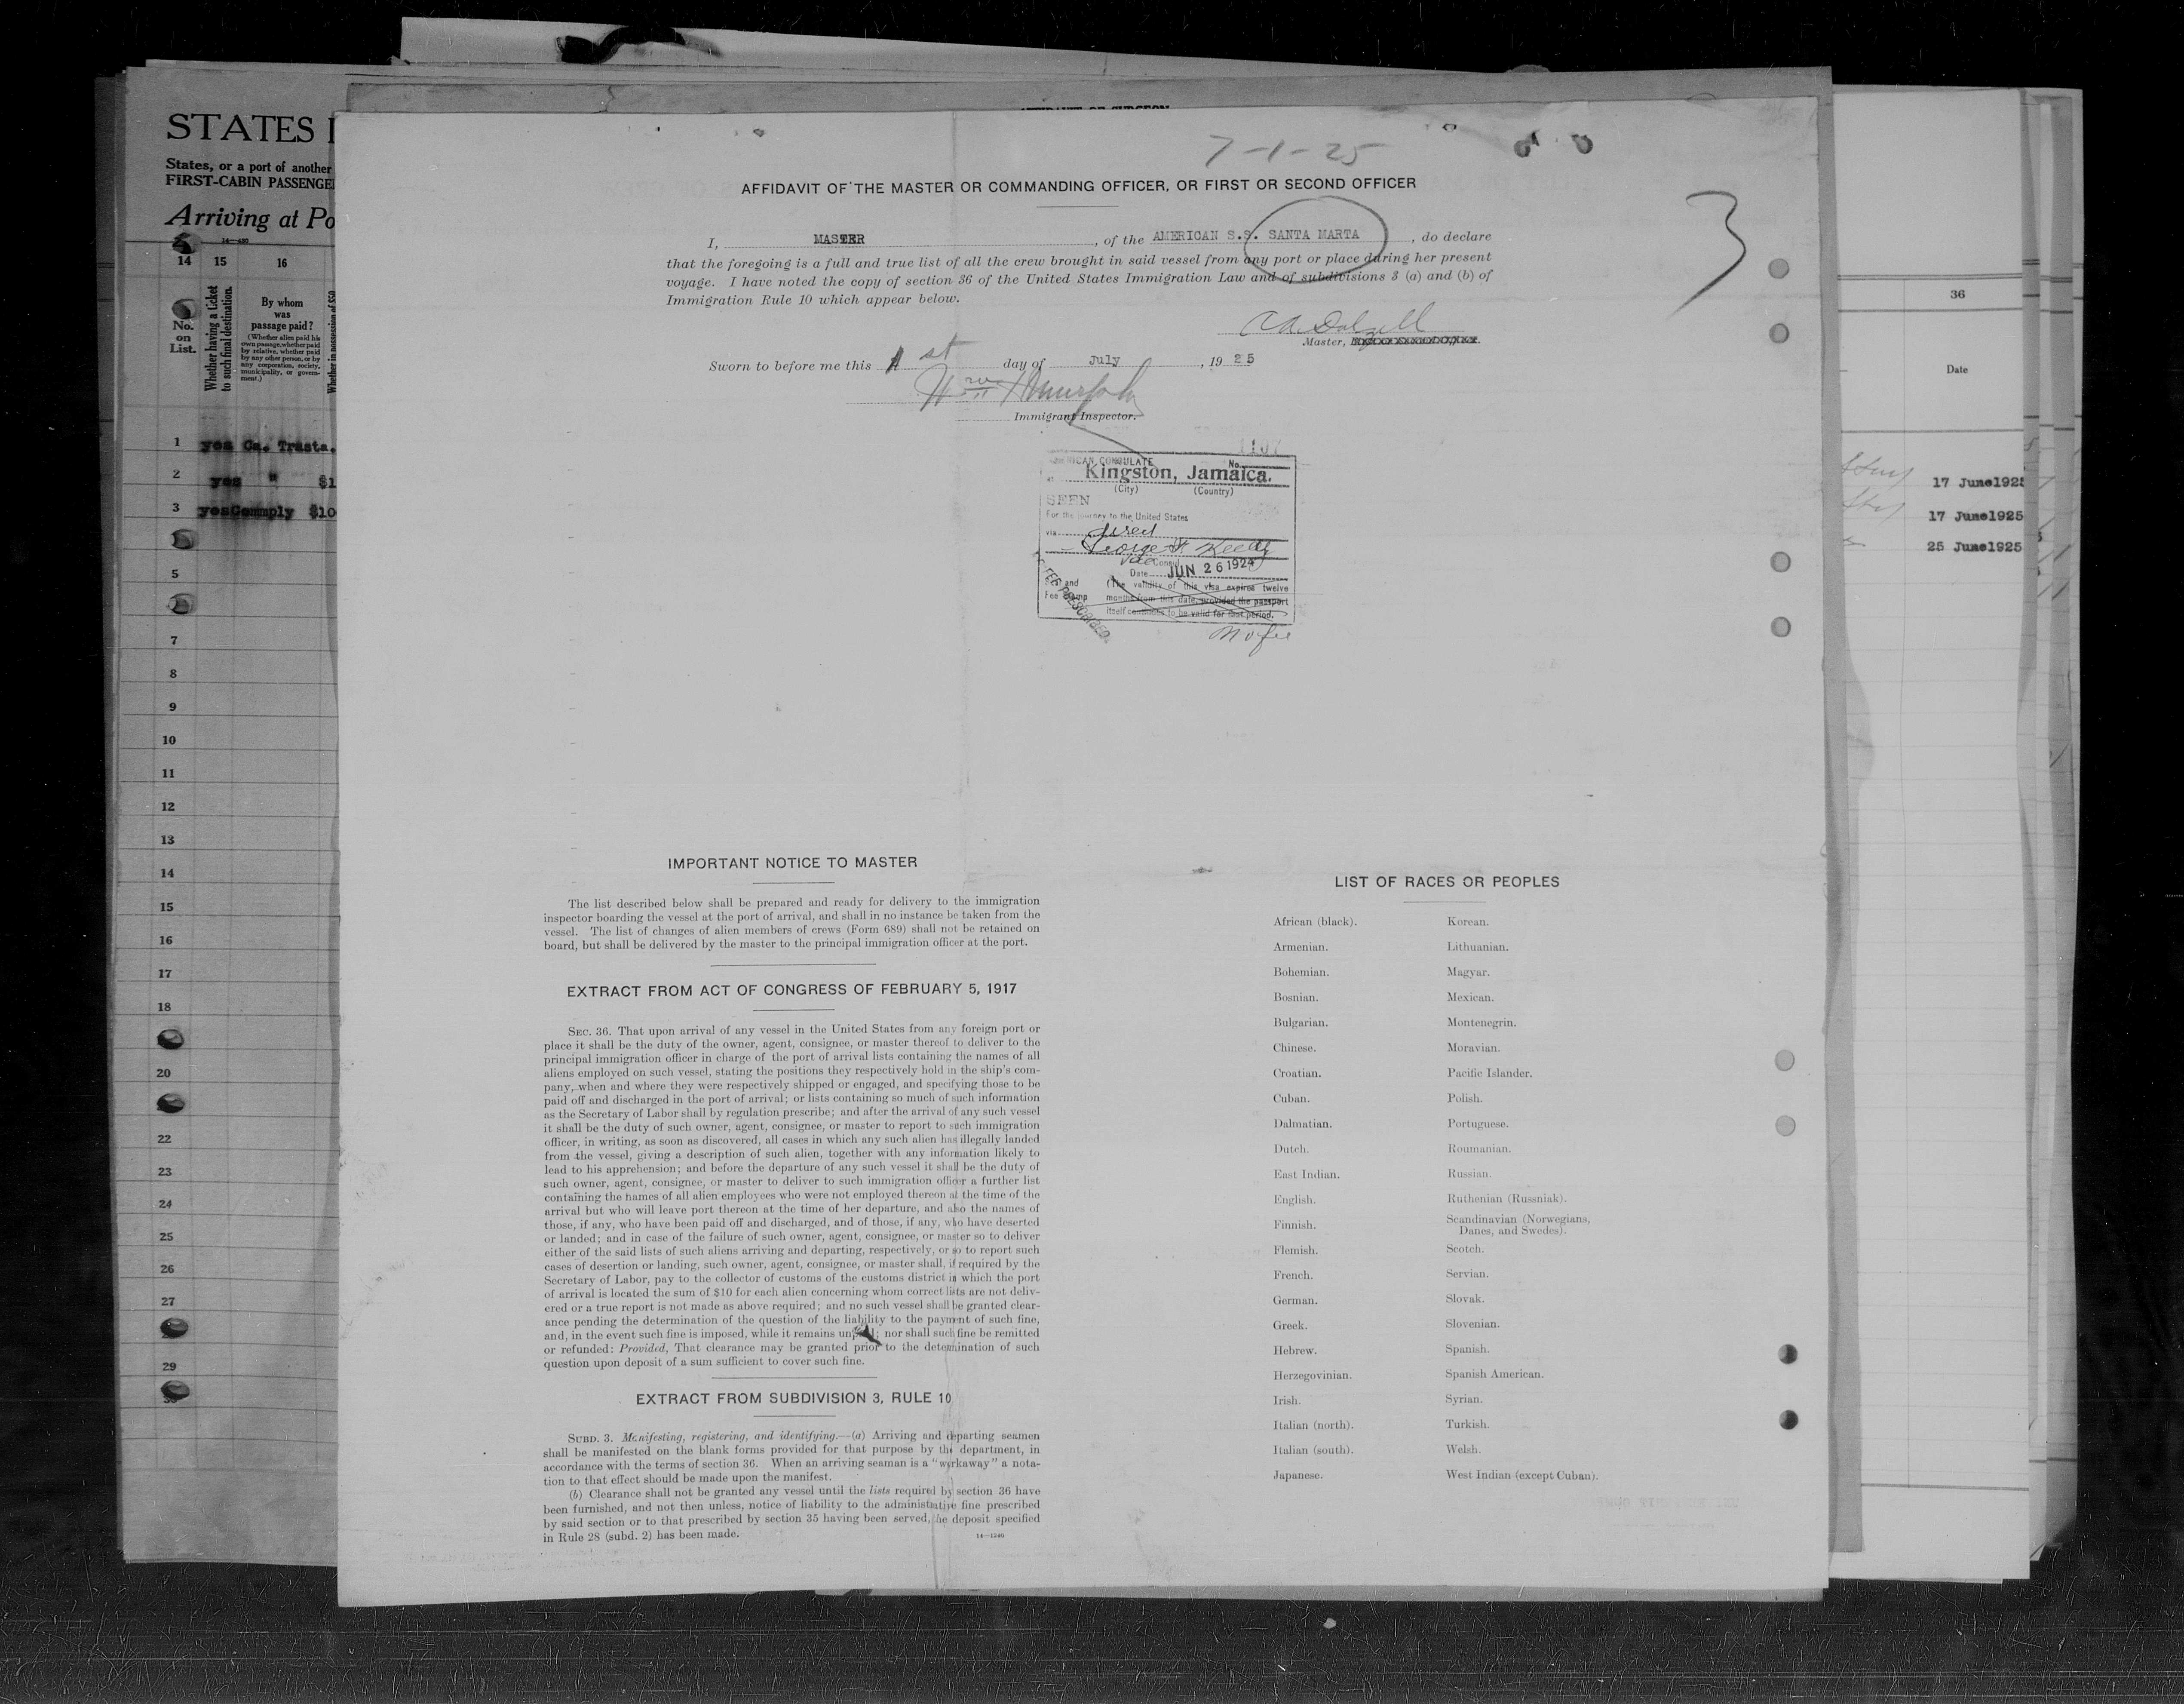 AFFIDAVIT OF SURGEON
STATES
States, or a port of another
FIRST-CABIN PASSENGE
Arriving at Po
14—480
14 15 16
No. on List.
Whether having a ticket to such final destination.
By whom was passage paid?
(Whether alien paid his own passage, whether paid by relative, whether paid by any other person, or by any corporation, society, municipality, or government.)
Whether in possession of $50
1 yes Ca. Trasta.
2 yes " $1
3 yes Commply $10
5
7
8
9
10
11
12
13
14
15
16
17
18
20
22
23
24
25
26
27
29
30
7-1-25
3
AFFIDAVIT OF THE MASTER OR COMMANDING OFFICER, OR FIRST OR SECOND OFFICER
I, MASTER, of the AMERICAN S.S. SANTA MARTA, do declare
that the foregoing is a full and true list of all the crew brought in said vessel from any port or place during her present
voyage. I have noted the copy of section 36 of the United States Immigration Law and of subdivisions 3 (a) and (b) of
Immigration Rule 10 which appear below.
Dalzell
Master,
Sworn to before me this 1st day of July, 1925
Wm Murphy
Immigrant Inspector.
1107
AMERICAN CONSULATE No.
at Kingston, Jamaica.
(City) (Country)
SEEN
For the journey to the United States
via direct
George
Vice Consul
Date JUN 26 192
Seal and Fee Stamp
(The validity of this visa expires twelve
months from this date, provided the passport
itself continues to be valid for that period.
NO FEE PRESCRIBED.
No fee
IMPORTANT NOTICE TO MASTER
The list described below shall be prepared and ready for delivery to the immigration
inspector boarding the vessel at the port of arrival, and shall in no instance be taken from the
vessel. The list of changes of alien members of crews (Form 689) shall not be retained on
board, but shall be delivered by the master to the principal immigration officer at the port.
EXTRACT FROM ACT OF CONGRESS OF FEBRUARY 5, 1917
SEC. 36. That upon arrival of any vessel in the United States from any foreign port or
place it shall be the duty of the owner, agent, consignee, or master thereof to deliver to the
principal immigration officer in charge of the port of arrival lists containing the names of all
aliens employed on such vessel, stating the positions they respectively hold in the ship's com-
pany, when and where they were respectively shipped or engaged, and specifying those to be
paid off and discharged in the port of arrival; or lists containing so much of such information
as the Secretary of Labor shall by regulation prescribe; and after the arrival of any such vessel
it shall be the duty of such owner, agent, consignee, or master to report to such immigration
officer, in writing, as soon as discovered, all cases in which any such alien has illegally landed
from the vessel, giving a description of such alien, together with any information likely to
lead to his apprehension; and before the departure of any such vessel it shall be the duty of
such owner, agent, consignee, or master to deliver to such immigration officer a further list
containing the names of all alien employees who were not employed thereon at the time of the
arrival but who will leave port thereon at the time of her departure, and also the names of
those, if any, who have been paid off and discharged, and of those, if any, who have deserted
or landed; and in case of the failure of such owner, agent, consignee, or master so to deliver
either of the said lists of such aliens arriving and departing, respectively, or so to report such
cases of desertion or landing, such owner, agent, consignee, or master shall, if required by the
Secretary of Labor, pay to the collector of customs of the customs district in which the port
of arrival is located the sum of $10 for each alien concerning whom correct lists are not deliv-
ered or a true report is not made as above required; and no such vessel shall be granted clear-
ance pending the determination of the question of the liability to the payment of such fine,
and, in the event such fine is imposed, while it remains unpaid; nor shall such fine be remitted
or refunded: Provided, That clearance may be granted prior to the determination of such
question upon deposit of a sum sufficient to cover such fine.
EXTRACT FROM SUBDIVISION 3, RULE 10
SUBD. 3. Manifesting, registering, and identifying.—(a) Arriving and departing seamen
shall be manifested on the blank forms provided for that purpose by the department, in
accordance with the terms of section 36. When an arriving seaman is a "workaway" a nota-
tion to that effect should be made upon the manifest.
(b) Clearance shall not be granted any vessel until the lists required by section 36 have
been furnished, and not then unless, notice of liability to the administrative fine prescribed
by said section or to that prescribed by section 35 having been served, the deposit specified
in Rule 28 (subd. 2) has been made.
14—1240
LIST OF RACES OR PEOPLES
African (black). Korean.
Armenian. Lithuanian.
Bohemian. Magyar.
Bosnian. Mexican.
Bulgarian. Montenegrin.
Chinese. Moravian.
Croatian. Pacific Islander.
Cuban. Polish.
Dalmatian. Portuguese.
Dutch. Roumanian.
East Indian. Russian.
English. Ruthenian (Russniak).
Finnish. Scandinavian (Norwegians,
Danes, and Swedes).
Flemish. Scotch.
French. Servian.
German. Slovak.
Greek. Slovenian.
Hebrew. Spanish.
Herzegovinian. Spanish American.
Irish. Syrian.
Italian (north). Turkish.
Italian (south). Welsh.
Japanese. West Indian (except Cuban).
36
Date
17 June1925
17 June1925
25 June1925